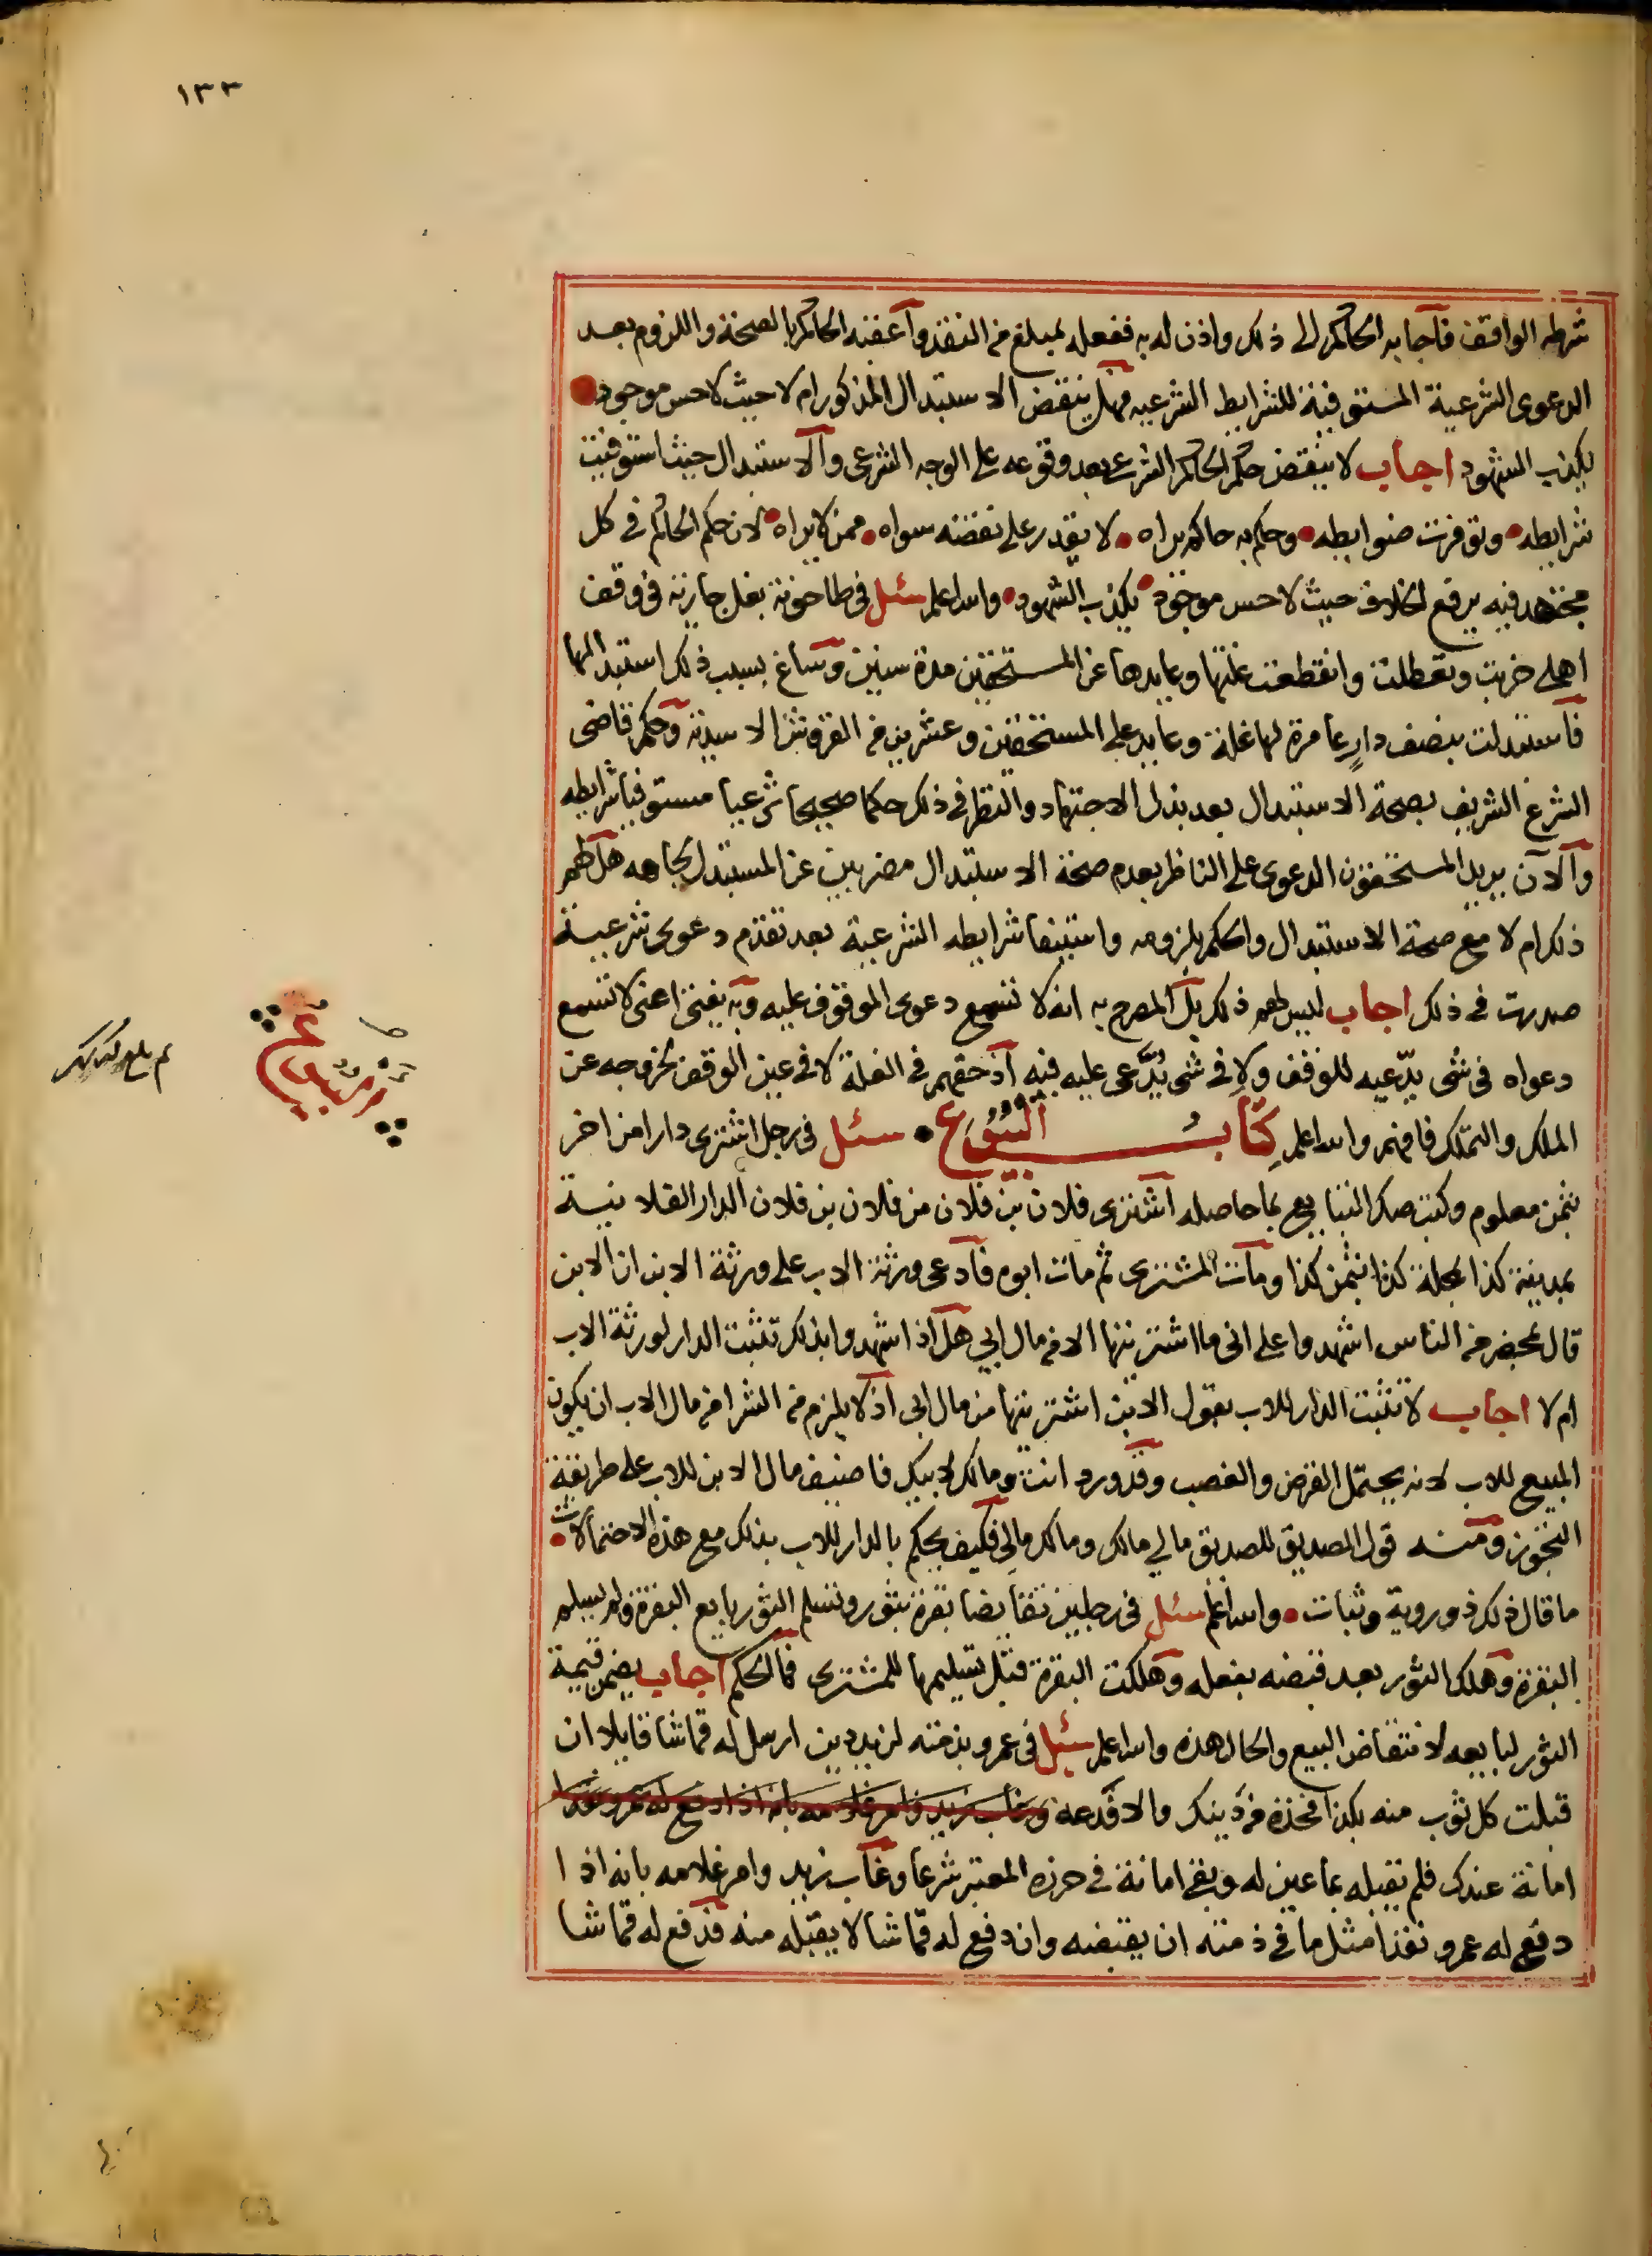 ١٣٣
شرطه الواقف فاجابه الحاكم الى ذلك واذن له به ففعله بمبلغ من النقد واعقبه الحاكم بالصحة واللزوم بعد
الدعوى الشرعية المستوفية للشرايط الشرعيه فهل ينقض الاستبدال المذكور ام لا حيث لا حس موجود
يكذب الشهود اجاب لا ينقض حكم الحاكم الشرعى بعد وقوعه على الوجه الشرعى والاستبدال حيث استوفيت
شرايطه وتوفرت ضوابطه وحكم به حاكم يراه لا يقدر على نقضه سواه ممن لا يراه لان حكم الحاكم فى كل
مجتهد فيه يرفع الخلاف حيث لا حس موجود يكذب الشهود والله اعلم سئل فى طاحونة بغل جارية فى وقف
اهلى خربت وتعطلت وانقطعت غلتها وعايدها عن المستحقين مدة سنين وساغ بسبب ذلك استبدالها
فاستبدلت بنصف دار عامرة لها غلة وعايد على المستحقين وعشرين من القروش الاسدية وحكم قاضى
الشرع الشريف بصحة الاستبدال بعد بذل الاجتهاد والنظر فى ذلك حكما صحيحا شرعيا مستوفيا شرايطه
والآن يريد المستحقون الدعوى على الناظر بعدم صحة الاستبدال مضربين عن المستبدل لجاهه هل لهم
ذلك ام لا مع صحة الاستبدال والحكم بلزومه واستيفا شرايطه الشرعية بعد تقدم دعوى شرعية
صدرت فى ذلك اجاب ليس لهم ذلك بل المصرح به انه لا تسمع دعوى الموقوف عليه وبه يفتى اعنى لا تسمع
دعواه فى شى يدّعيه للوقف ولا فى شى يُدَّعى عليه فيه اذ حقهم فى الغلة لا فى عين الوقف لخروجه عن
الملك والتملك فافهم والله اعلم كِتَابُ البُيُوعِ سئل فى رجل اشترى دارا من اخر
بثمن معلوم وكتب صك التبايع بما حاصله اشترى فلان بن فلان من فلان بن فلان الدار الفلانية
بمدينة كذا بمحلة كذا بثمن كذا ومات المشترى ثم مات ابوه فادعى ورثة الاب على ورثة الابن ان الابن
قال بمحضر من الناس اشهدوا على انى ما اشتريتها الا من مال ابى هل اذا شهدوا بذلك تثبت الدار لورثة الاب
ام لا اجاب لا تثبت الدار للاب بقول الابن اشتريتها من مال ابى اذ لا يلزم من الشرا من مال الاب ان يكون
المبيع للاب لانه يحتمل القرض والغصب وقد ورد انت ومالك لابيك فاضيف مال الابن للاب على طريقة
التجوز ومنه قول الصديق للصديق مالى مالك ومالك مالى فكيف يحكم بالدار للاب بذلك مع هذه الاحتمالات
ما قال ذلك ذو روية وثبات والله اعلم سئل فى رجلين تقايضا بقرة بثور وتسلم الثور بايع البقرة ولم يسلم
البقرة وهلك الثور بعد قبضه بفعله وهلكت البقرة قبل تسليمها للمشترى فما الحكم اجاب يضمن قيمة
الثور لبايعه لانتقاض البيع والحال هذه والله اعلم سئل فى عمرو بذمته لزيد دين ارسل له قماشا قايلا ان
قبلت كل ثوب منه بكذا فخذه من دينك والا فدعه وغاب زيد وامر غلامه بانه اذا دفع له عمرو نقدا
امانة عندك فلم يقبله بما عين له وبقى امانة فى حرزه المعتبر شرعا وغاب زيد وامر غلامه بانه اذا
دفع له عمرو نقدا مثل ما فى ذمته ان يقبضه وان دفع له قماشا لا يقبله منه فدفع له قماشا